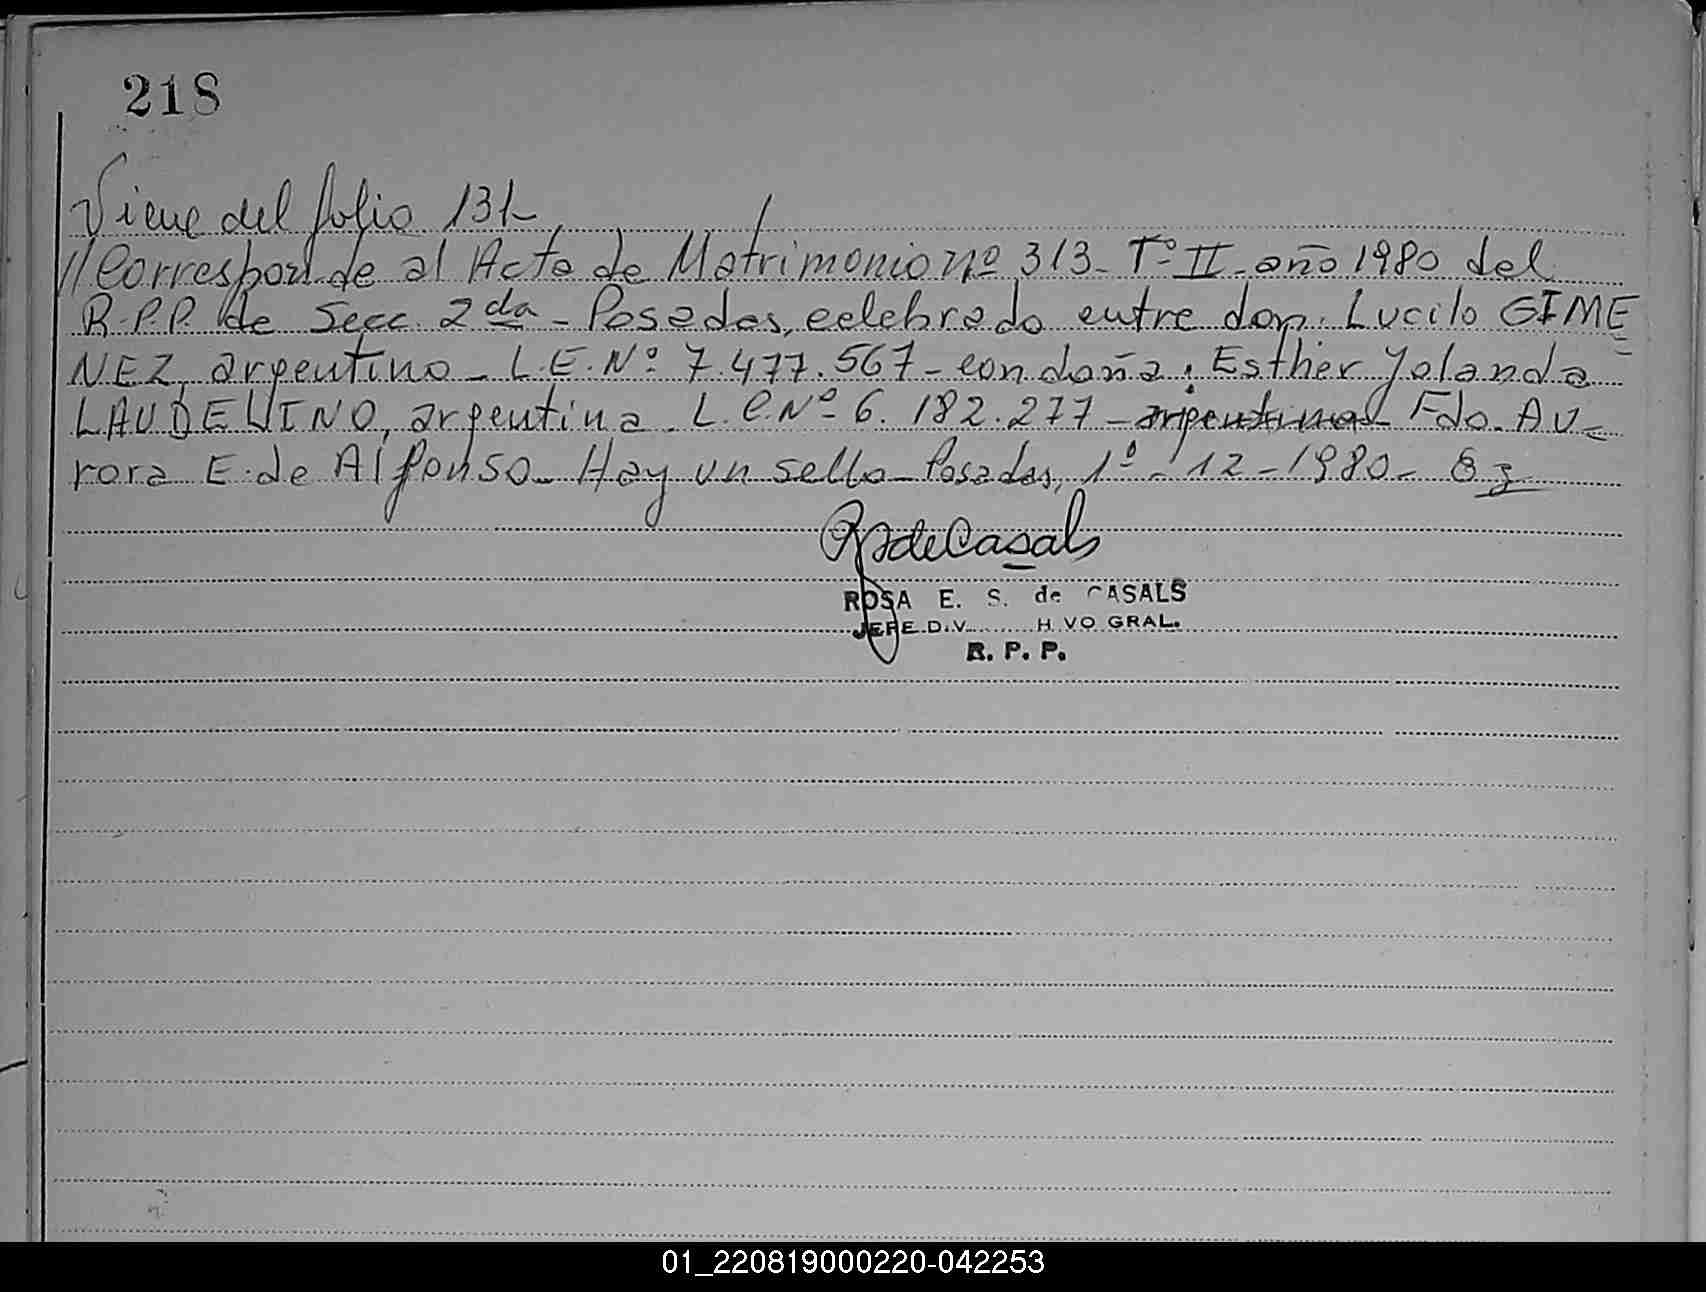 218
Viene del folio 131-
// Corresponde al Acta de Matrimonio nº 313- Tº II- año 1980 del
R.P.P. de Secc. 2da - Posadas, celebrado entre don: Lucilo GIME
NEZ, argentino - L.E. Nº 7.477.567 - con doña: Esther Yolanda
LAUDELINO, argentina. L.C. Nº 6.182.277 - argentina Fdo. Au-
rora E. de Alfonso- Hay un sello- Posadas, 1º-12-1980-
RSdeCasals
ROSA E. S. de CASALS
JEFE DIV VO GRAL.
R. P. P.
01_220819000220-042253